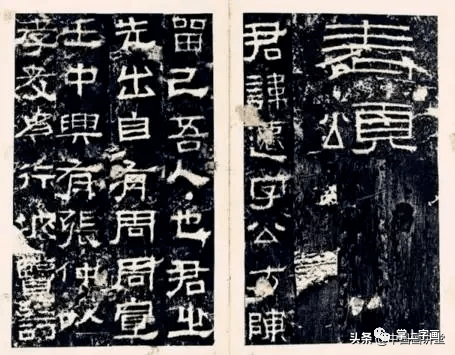 表頌
君諱遷字公方陳
留己吾人也君之
先出自有周周宣
王中興有張仲以
孝友為行披覽詩
掌上字画
头条